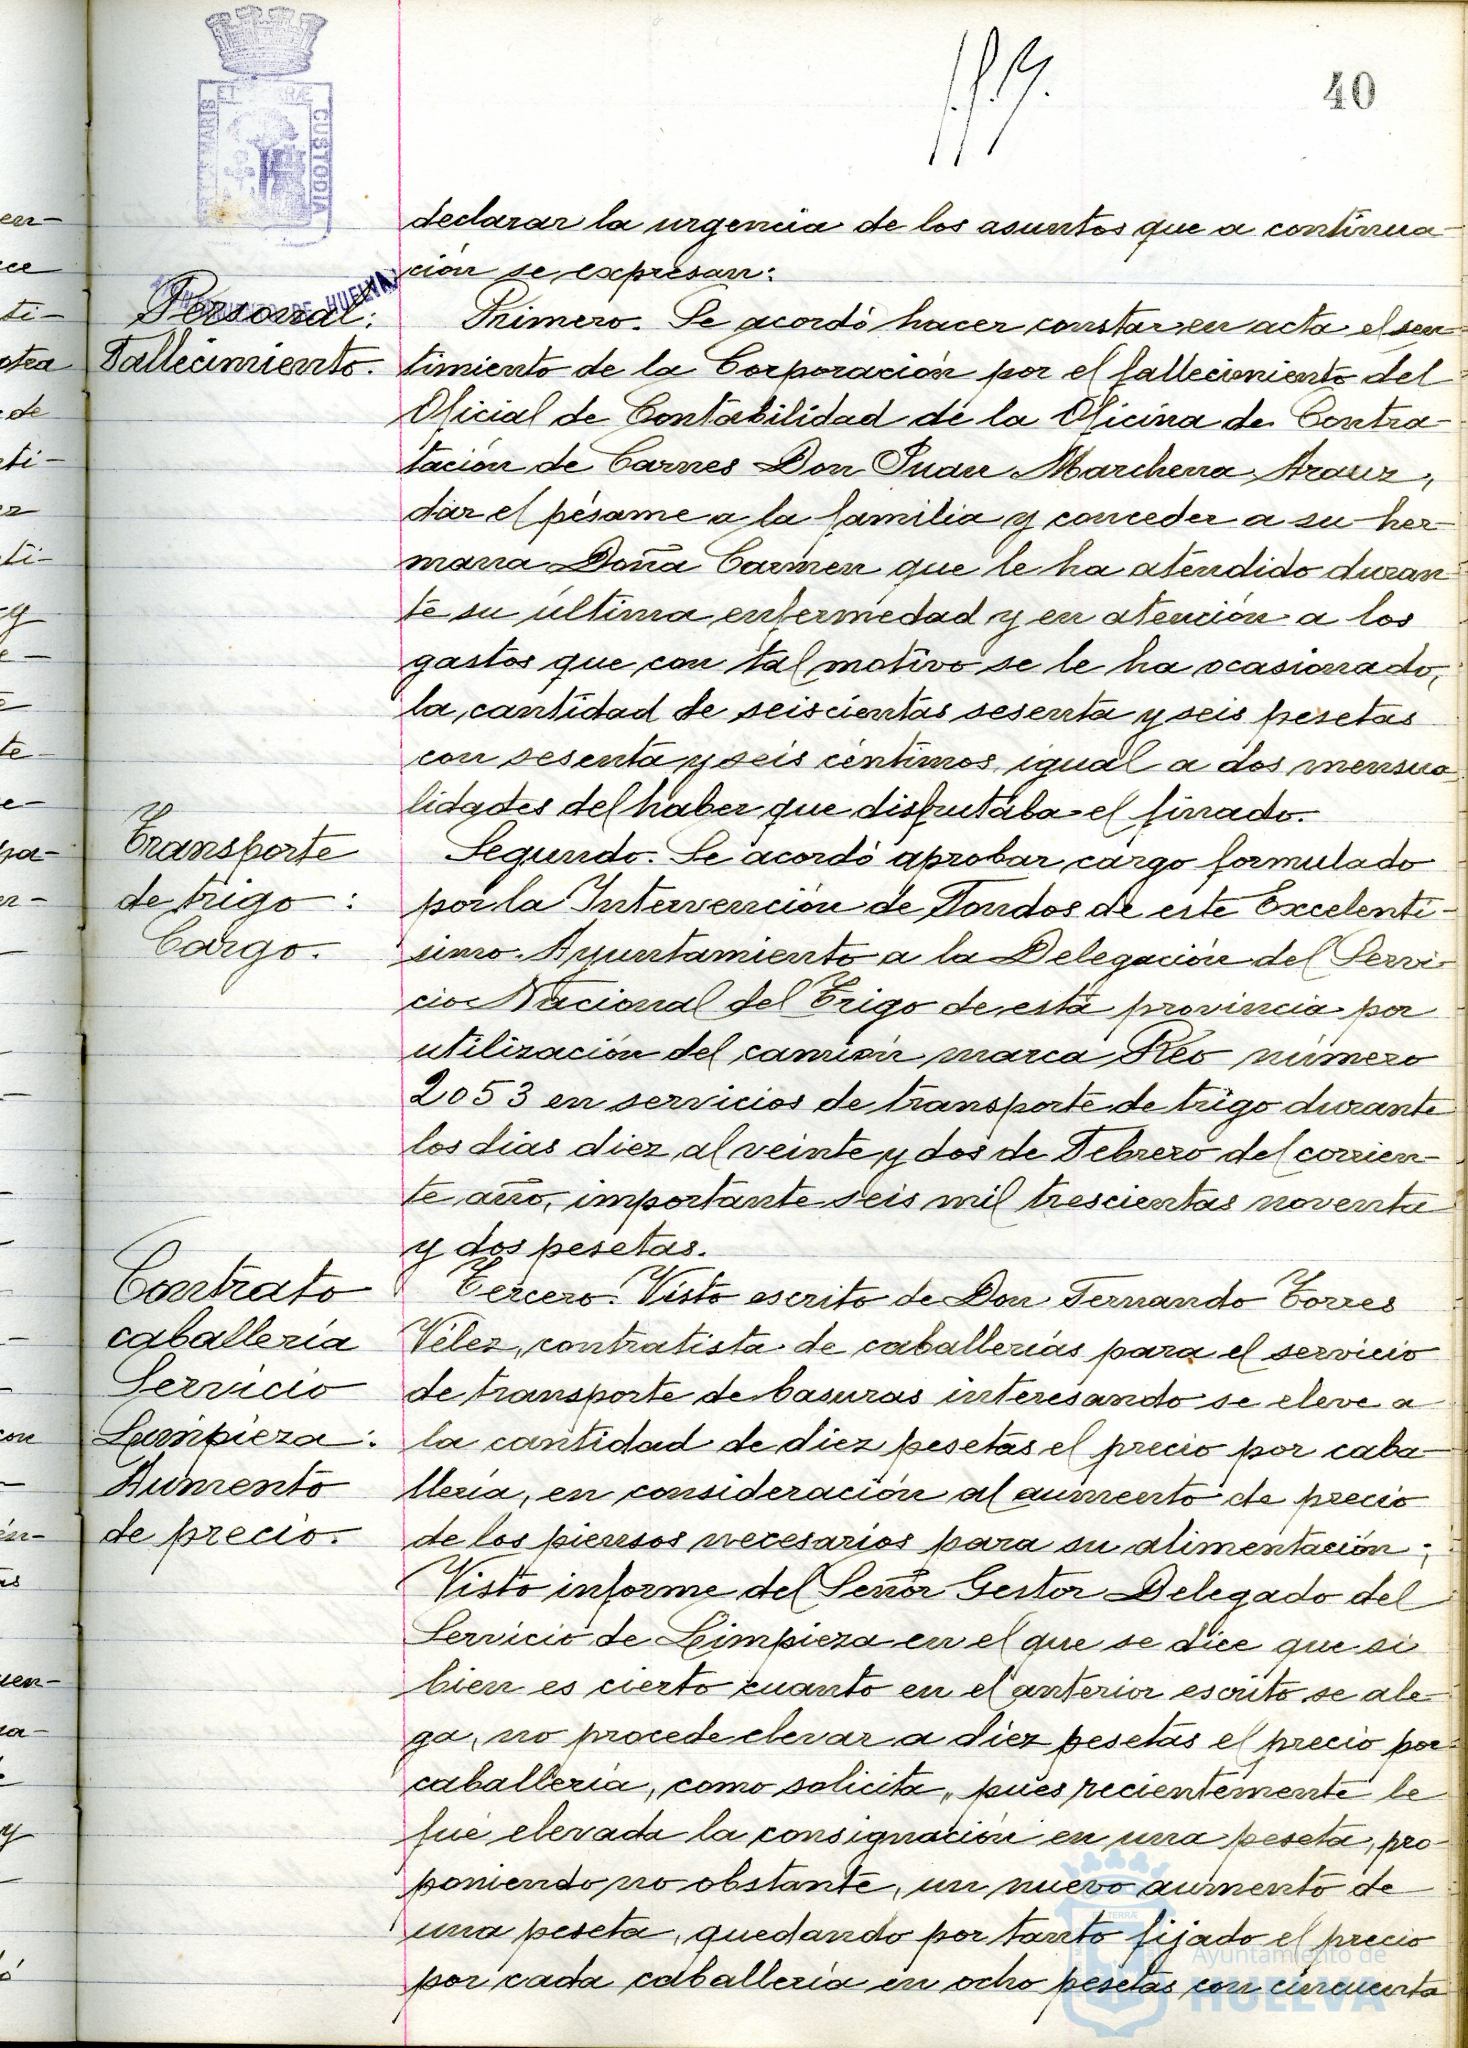 40
PORTUS MARIS ET TERRÆ CUSTODIA
AYUNTAMIENTO DE HUELVA
declarar la urgencia de los asuntos que a continua-
ción se expresan:
Personal:
Fallecimiento.
Primero. Se acordó hacer constar en acta el sen-
timiento de la Corporación por el fallecimiento del
Oficial de Contabilidad de la Oficina de Contra-
tación de Carnes Don Juan Marchena Arauz,
dar el pésame a la familia y conceder a su her-
mana Doña Carmen que le ha atendido duran-
te su última enfermedad y en atención a los
gastos que con tal motivo se le ha ocasionado,
la cantidad de seiscientas sesenta y seis pesetas
con sesenta y seis céntimos, igual a dos mensua-
lidades del haber que disfrutaba el finado.
Transporte
de trigo:
Cargo.
Segundo. Se acordó aprobar cargo formulado
por la Intervención de Fondos de este Excelentí-
simo Ayuntamiento a la Delegación del Servi-
cio Nacional del Trigo de esta provincia por
utilización del camión marca Reo número
2053 en servicios de transporte de trigo durante
los dias diez al veinte y dos de Febrero del corrien-
te año, importante seis mil trescientas noventa
y dos pesetas.
Contrato
caballería
Servicio
Limpieza:
Aumento
de precio.
Tercero. Visto escrito de Don Fernando Torres
Vélez, contratista de caballerías para el servicio
de transporte de basuras interesando se eleve a
la cantidad de diez pesetas el precio por caba-
llería, en consideración al aumento de precio
de los piensos necesarios para su alimentación;
Visto informe del Señor Gestor Delegado del
Servicio de Limpieza en el que se dice que si
bien es cierto cuanto en el anterior escrito se ale-
ga, no procede elevar a diez pesetas el precio por
caballería, como solicita, pues recientemente le
fué elevada la consignación en una peseta, pro-
poniendo no obstante, un nuevo aumento de
una peseta, quedando por tanto fijado el precio
por cada caballería en ocho pesetas con cincuenta
Ayuntamiento de
HUELVA